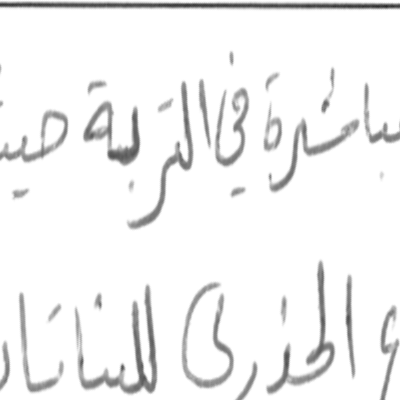 مباشرة في التربة حيث
ع الجذري للنباتات